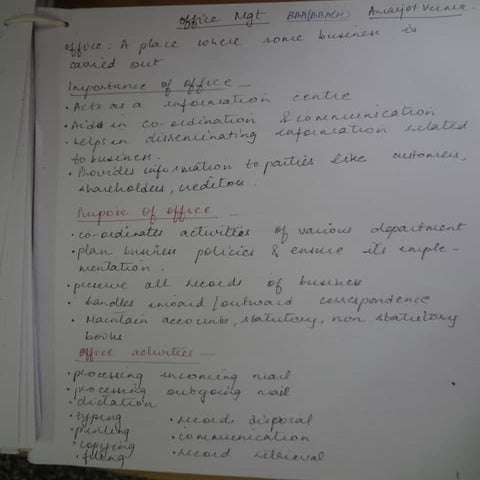 office Mgt BBA(BBACH) Amarjot Verma.
office : A place where some business is
carried out
Importance of office —
• Acts as a information centre
• Aids in co-ordination & communication
• helps in disseminating information related
to business.
• Provides information to parties like customers,
shareholders, creditors.
Purpose of office —
• co-ordinates activities of various department
• plan business policies & ensure its imple-
mentation.
• preserve all records of business
• handles inward / outward correspondence
• Maintain accounts, statutory, non statutory
books
office activities —
• processing incoming mail
• processing outgoing mail
• dictation
• typing • record disposal
• printing • communication
• copying • record retrieval
• filing